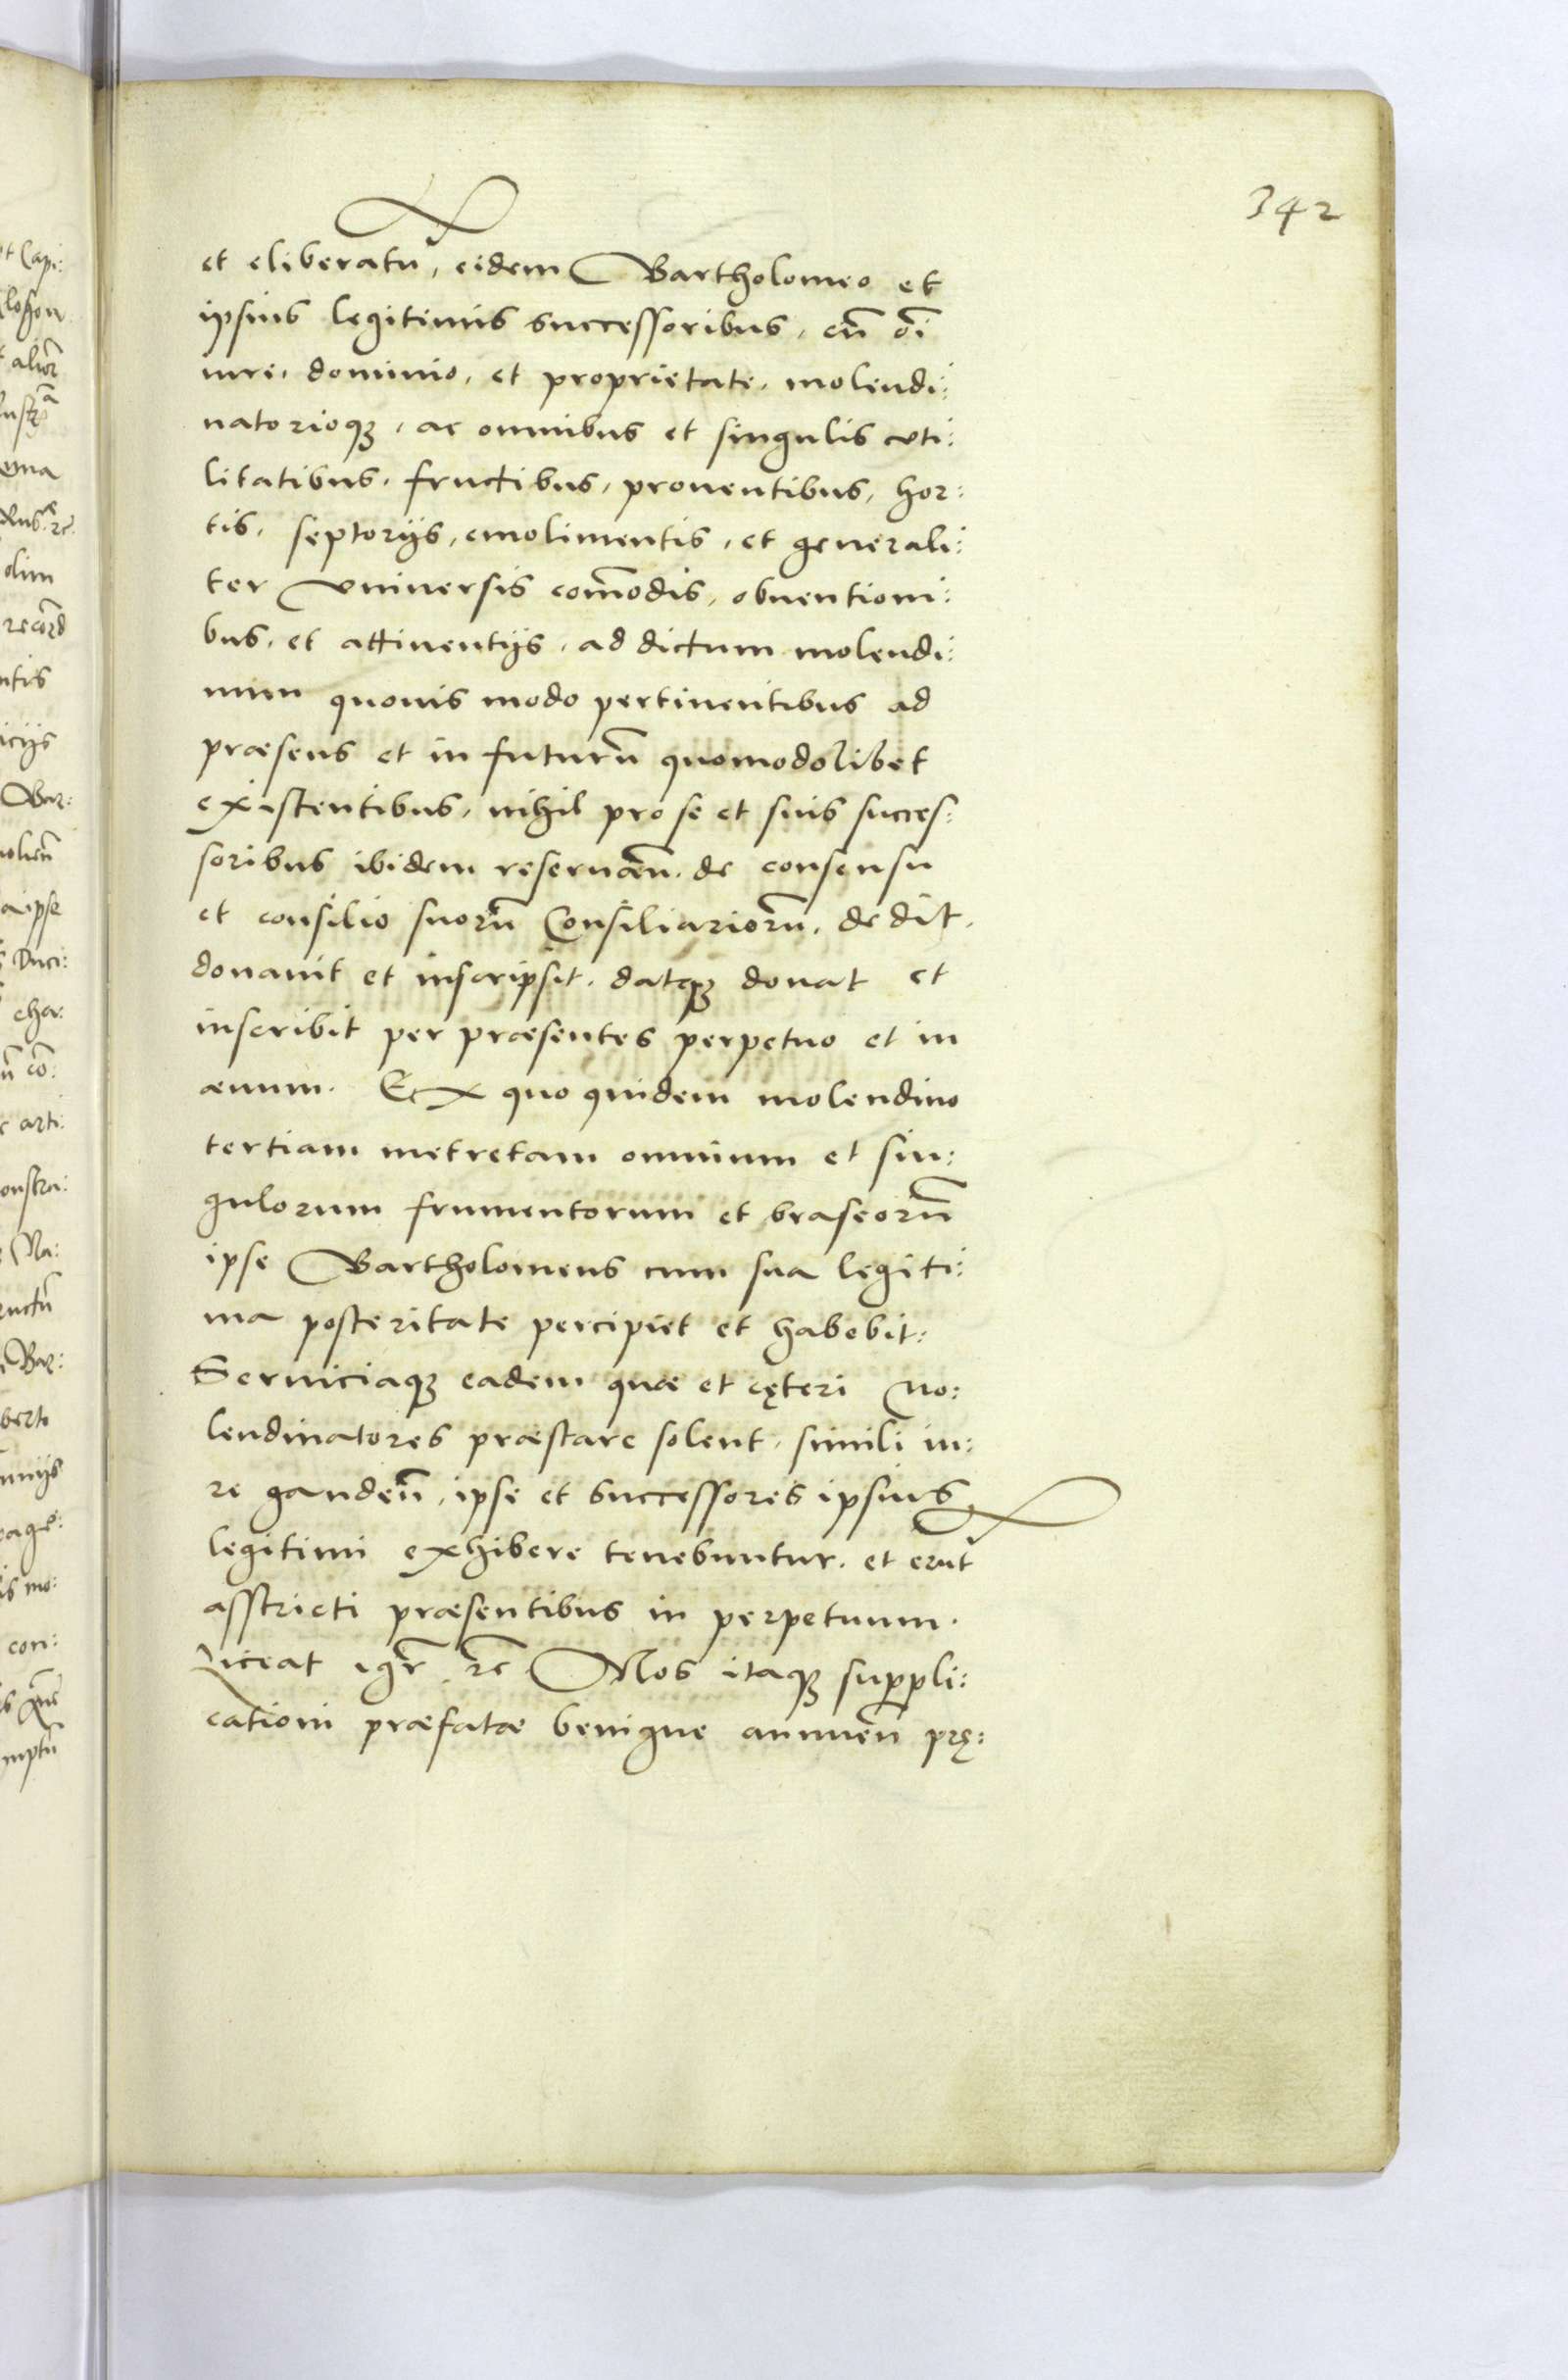 342
et eliberatū, eidem Bartholomeo et
ipsius legitimis successoribus, cū oī
iure, dominio, et proprietate, molendi:
natorioqꝫ, ac omnibus et singulis vti:
litatibus, fructibus, prouentibus, hor:
tis, septorijs, emolimentis, et generali:
ter vniuersis com̄odis, obuentioni:
bus, et attinentijs, ad dictum molendi:
num quouis modo pertinentibus ad
præsens et in futurū quomodolibet
existentibus, nihil pro se et suis succes:
soribus ibidem reseruān̄. de consensu
et consilio suorū Consiliariorū, dedit,
donauit et inscripsit, datqꝫ donat et
inscribit per præsentes perpetuo et in
æuum. Ex quo quidem molendino
tertiam metretam omnium et sin:
gulorum frumentorum et braseorū
ipse Bartholomeus cum sua legiti:
ma posteritate percipiet et habebit:
Seruiciaqꝫ eadem quæ et cęteri Mo:
lendinatores præstare solent, simili iu:
re gauden̄, ipse et successores ipsius
legitimi exhibere tenebuntur, et erūt
asstricti præsentibus in perpetuum.
Liceat igr̄ ꝛc̄ Nos itaqꝫ suppli:
cationi præfatæ benigne annuen̄ prę: